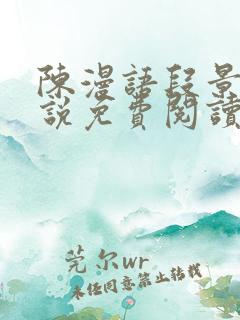 陳漫語段景
説免費閱讀
莞尔wr
未经同意禁止转载